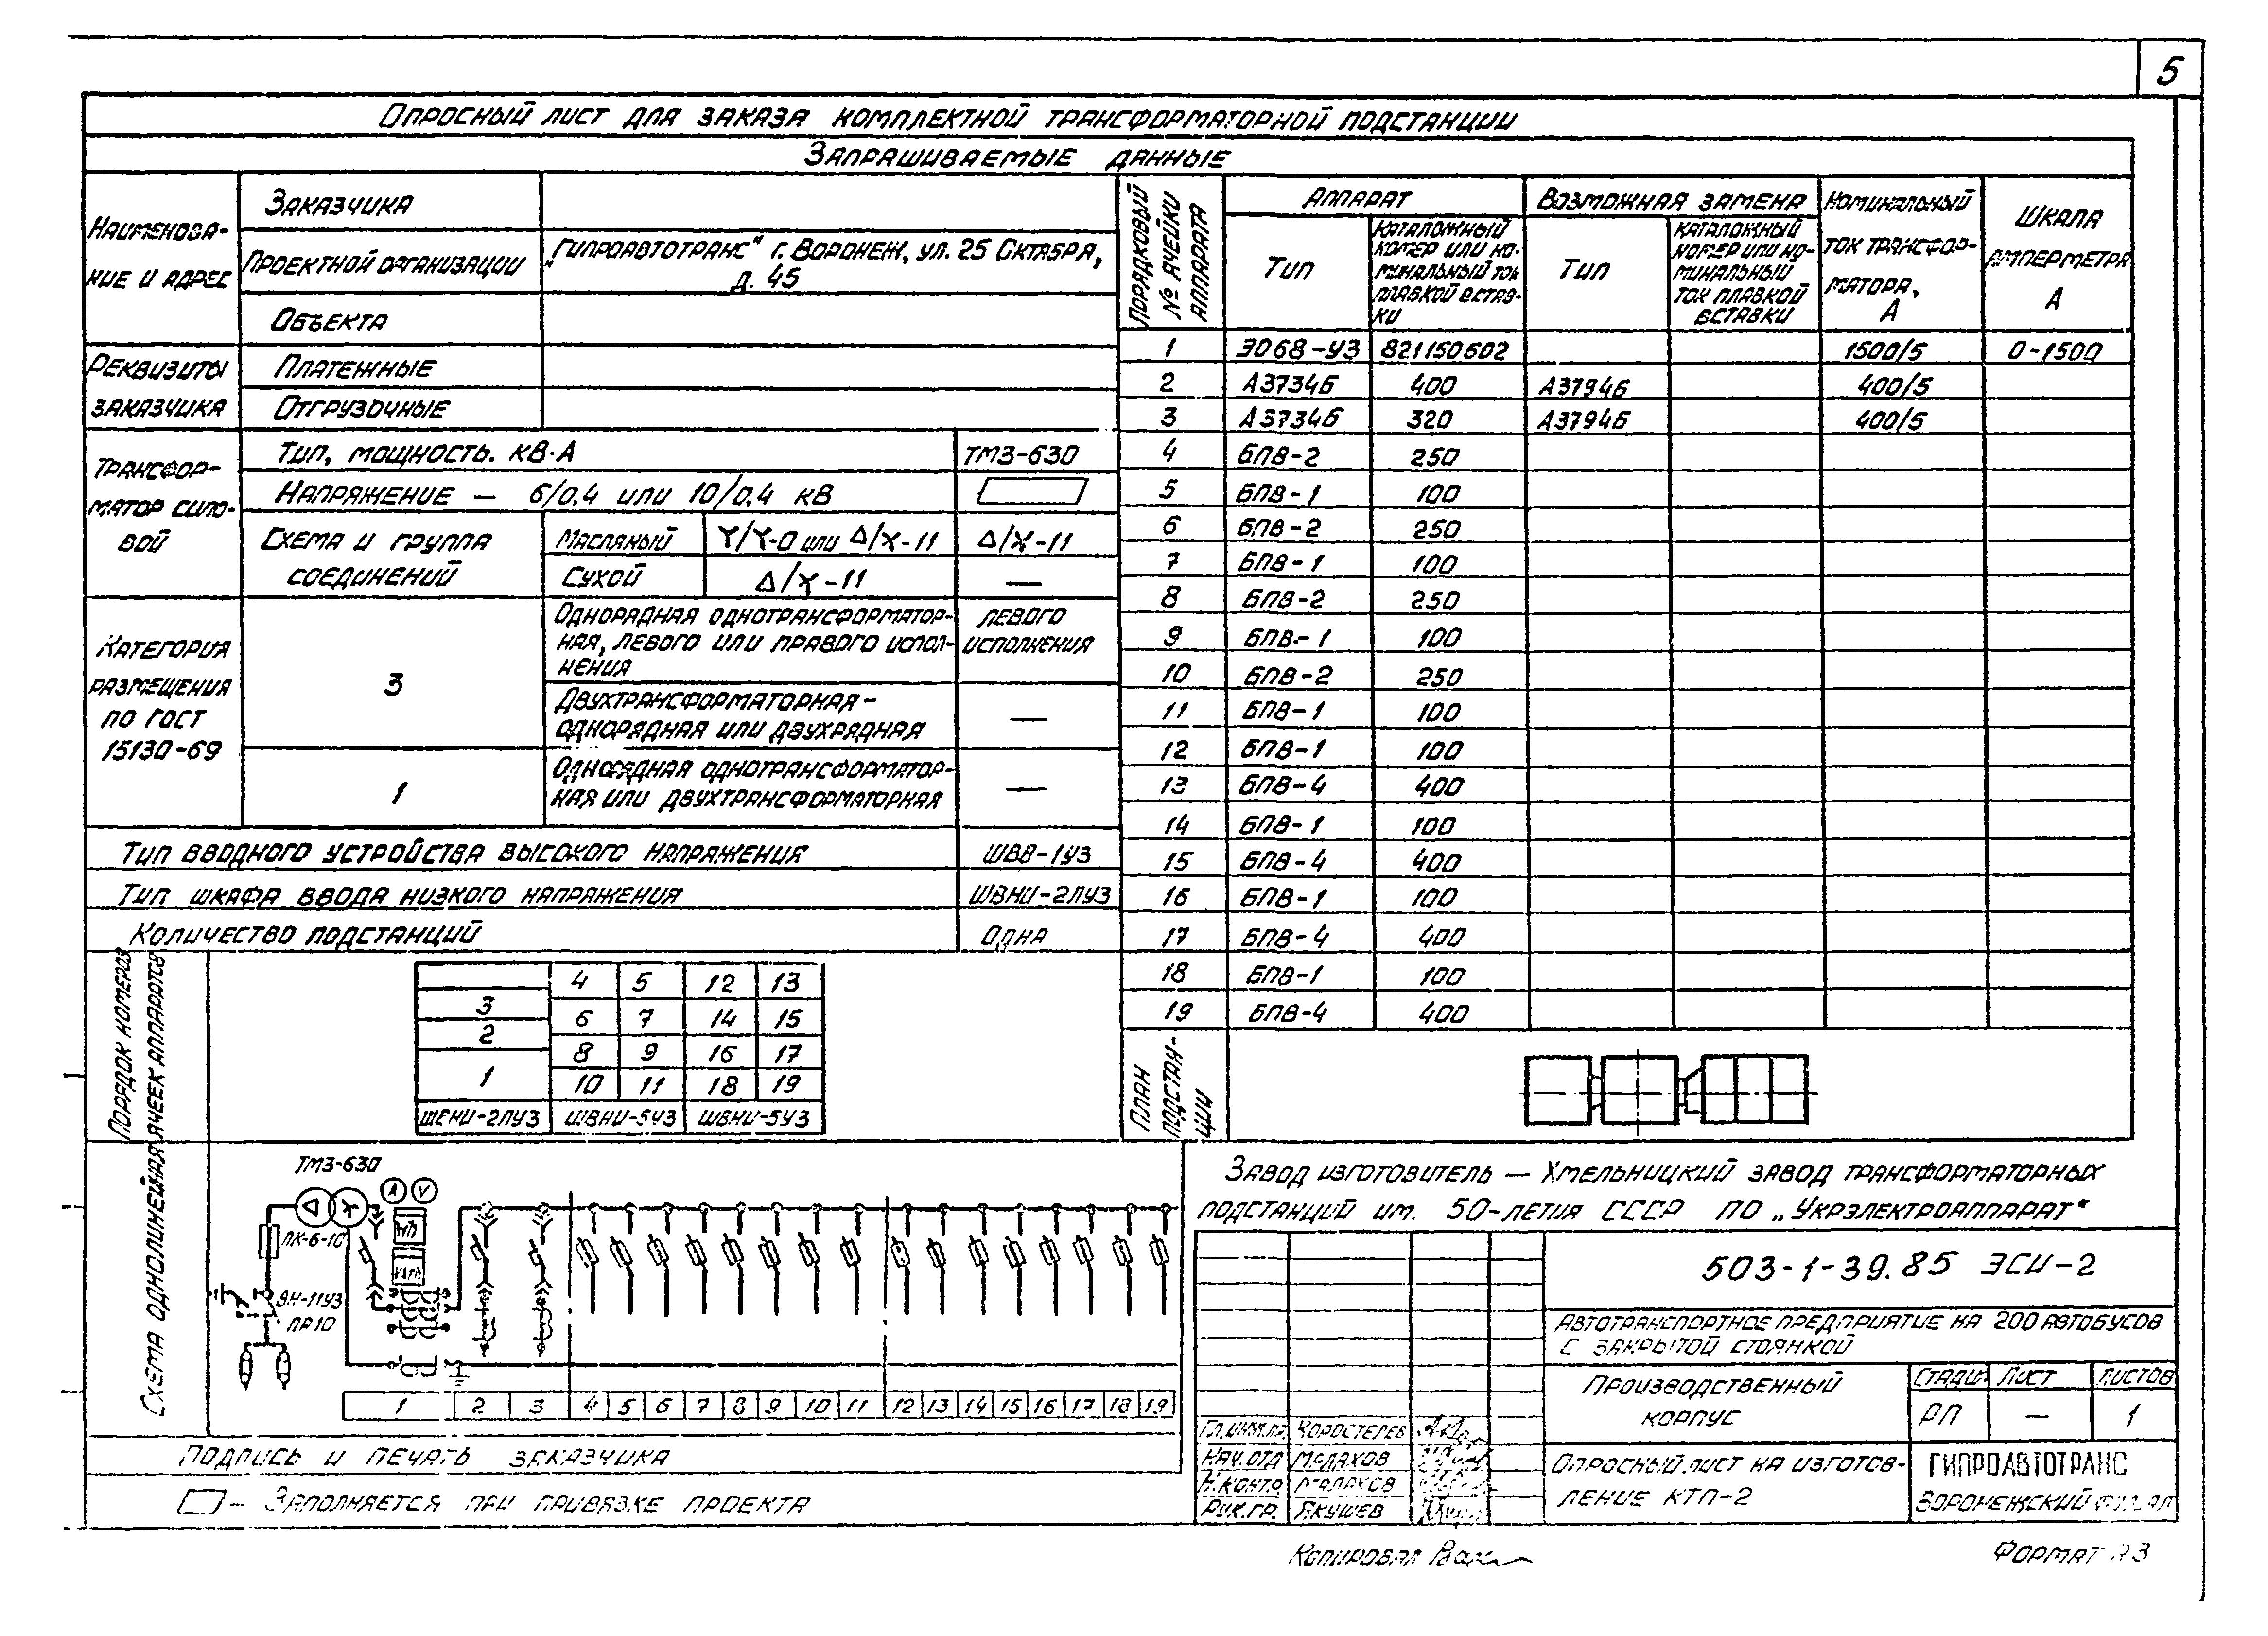 5
Опросный лист для заказа комплектной трансформаторной подстанции
Запрашиваемые данные
Наименова-
ние и адрес
Заказчика
Проектной организации
„Гипроавтотранс“ г. Воронеж, ул. 25 Октября,
д. 45
Объекта
Реквизиты
заказчика
Платежные
Отгрузочные
Трансфор-
матор сило-
вой
Тип, мощность. кВ·А
ТМЗ-630
Напряжение — 6/0,4 или 10/0,4 кВ
Схема и группа
соединений
Масляный
Y/Y-0 или Δ/Y-11
Δ/Y-11
Сухой
Δ/Y-11
—
Категория
размещения
по ГОСТ
15130-69
3
Однорядная однотрансформатор-
ная, левого или правого испол-
нения
левого
исполнения
Двухтрансформаторная-
однорядная или двухрядная
—
1
Однорядная однотрансформатор-
ная или двухтрансформаторная
—
Тип вводного устройства высокого напряжения
ШВВ-1У3
Тип шкафа ввода низкого напряжения
ШВНИ-2ЛУ3
Количество подстанций
Одна
Порядковый
№ ячейки
аппарата
Аппарат
Возможная замена
Номинальный
ток трансфор-
матора,
А
Шкала
амперметра
А
Тип
Каталожный
номер или но-
минальный ток
плавкой встав-
ки
Тип
Каталожный
номер или но-
минальный
ток плавкой
вставки
1 Э068-У3 821150602 1500/5 0-1500
2 А3734Б 400 А3794Б 400/5
3 А3734Б 320 А3794Б 400/5
4 БПВ-2 250
5 БПВ-1 100
6 БПВ-2 250
7 БПВ-1 100
8 БПВ-2 250
9 БПВ-1 100
10 БПВ-2 250
11 БПВ-1 100
12 БПВ-1 100
13 БПВ-4 400
14 БПВ-1 100
15 БПВ-4 400
16 БПВ-1 100
17 БПВ-4 400
18 БПВ-1 100
19 БПВ-4 400
Порядок номеров
ячеек аппаратов
4 5 12 13
3
6 7 14 15
2
8 9 16 17
1
10 11 18 19
ШВНИ-2ЛУ3 ШВНИ-5У3 ШВНИ-5У3
План
подстан-
ции
Схема однолинейная
ТМЗ-630
А V
ПК-6-10
ВН-11У3
ПР10
1 2 3 4 5 6 7 8 9 10 11 12 13 14 15 16 17 18 19
Подпись и печать заказчика
– Заполняется при привязке проекта
Завод изготовитель — Хмельницкий завод трансформаторных
подстанций им. 50-летия СССР ПО „Укрэлектроаппарат“
503-1-39.85 ЭСИ-2
Автотранспортное предприятие на 200 автобусов
с закрытой стоянкой
Производственный
корпус
Стадия Лист Листов
РП — 1
Гл.инж.пр. Коростелев
Нач.отд Малахов
Н.контр Малахов
Рук.гр. Якушев
Опросный лист на изготов-
ление КТП-2
ГИПРОАВТОТРАНС
Воронежский филиал
Копировал
Формат А3